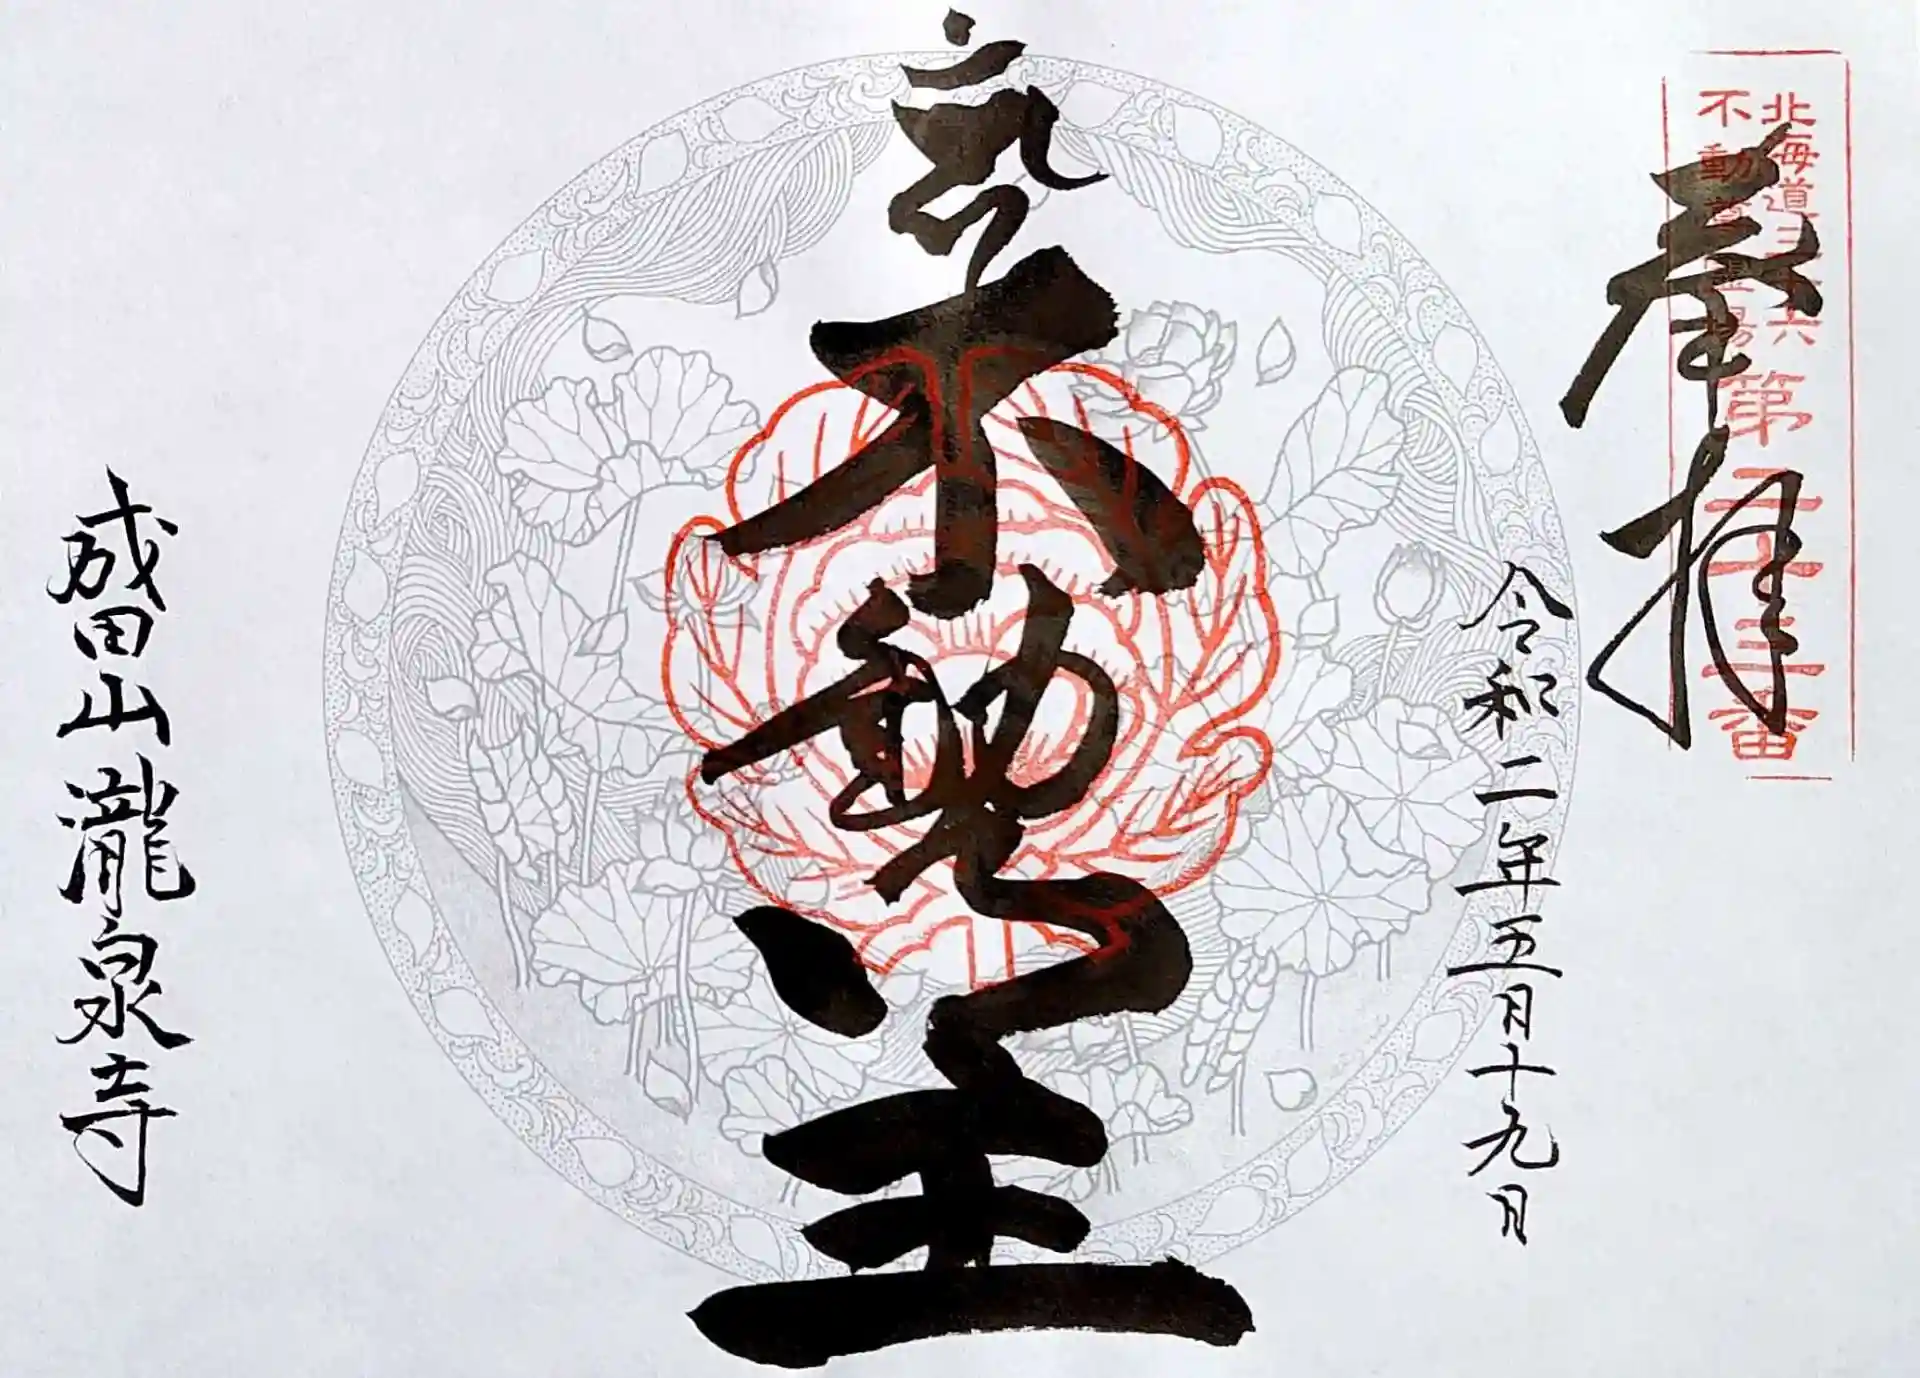 北海道三十六
不動尊霊場
第二十三番
奉拝
令和二年五月十九日
不動
成田山瀧泉寺